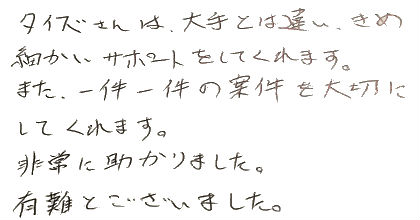 タイズさんは、大手とは違い、きめ
細かいサポートをしてくれます。
また、一件一件の案件を大切に
してくれます。
非常に助かりました。
有難とございました。